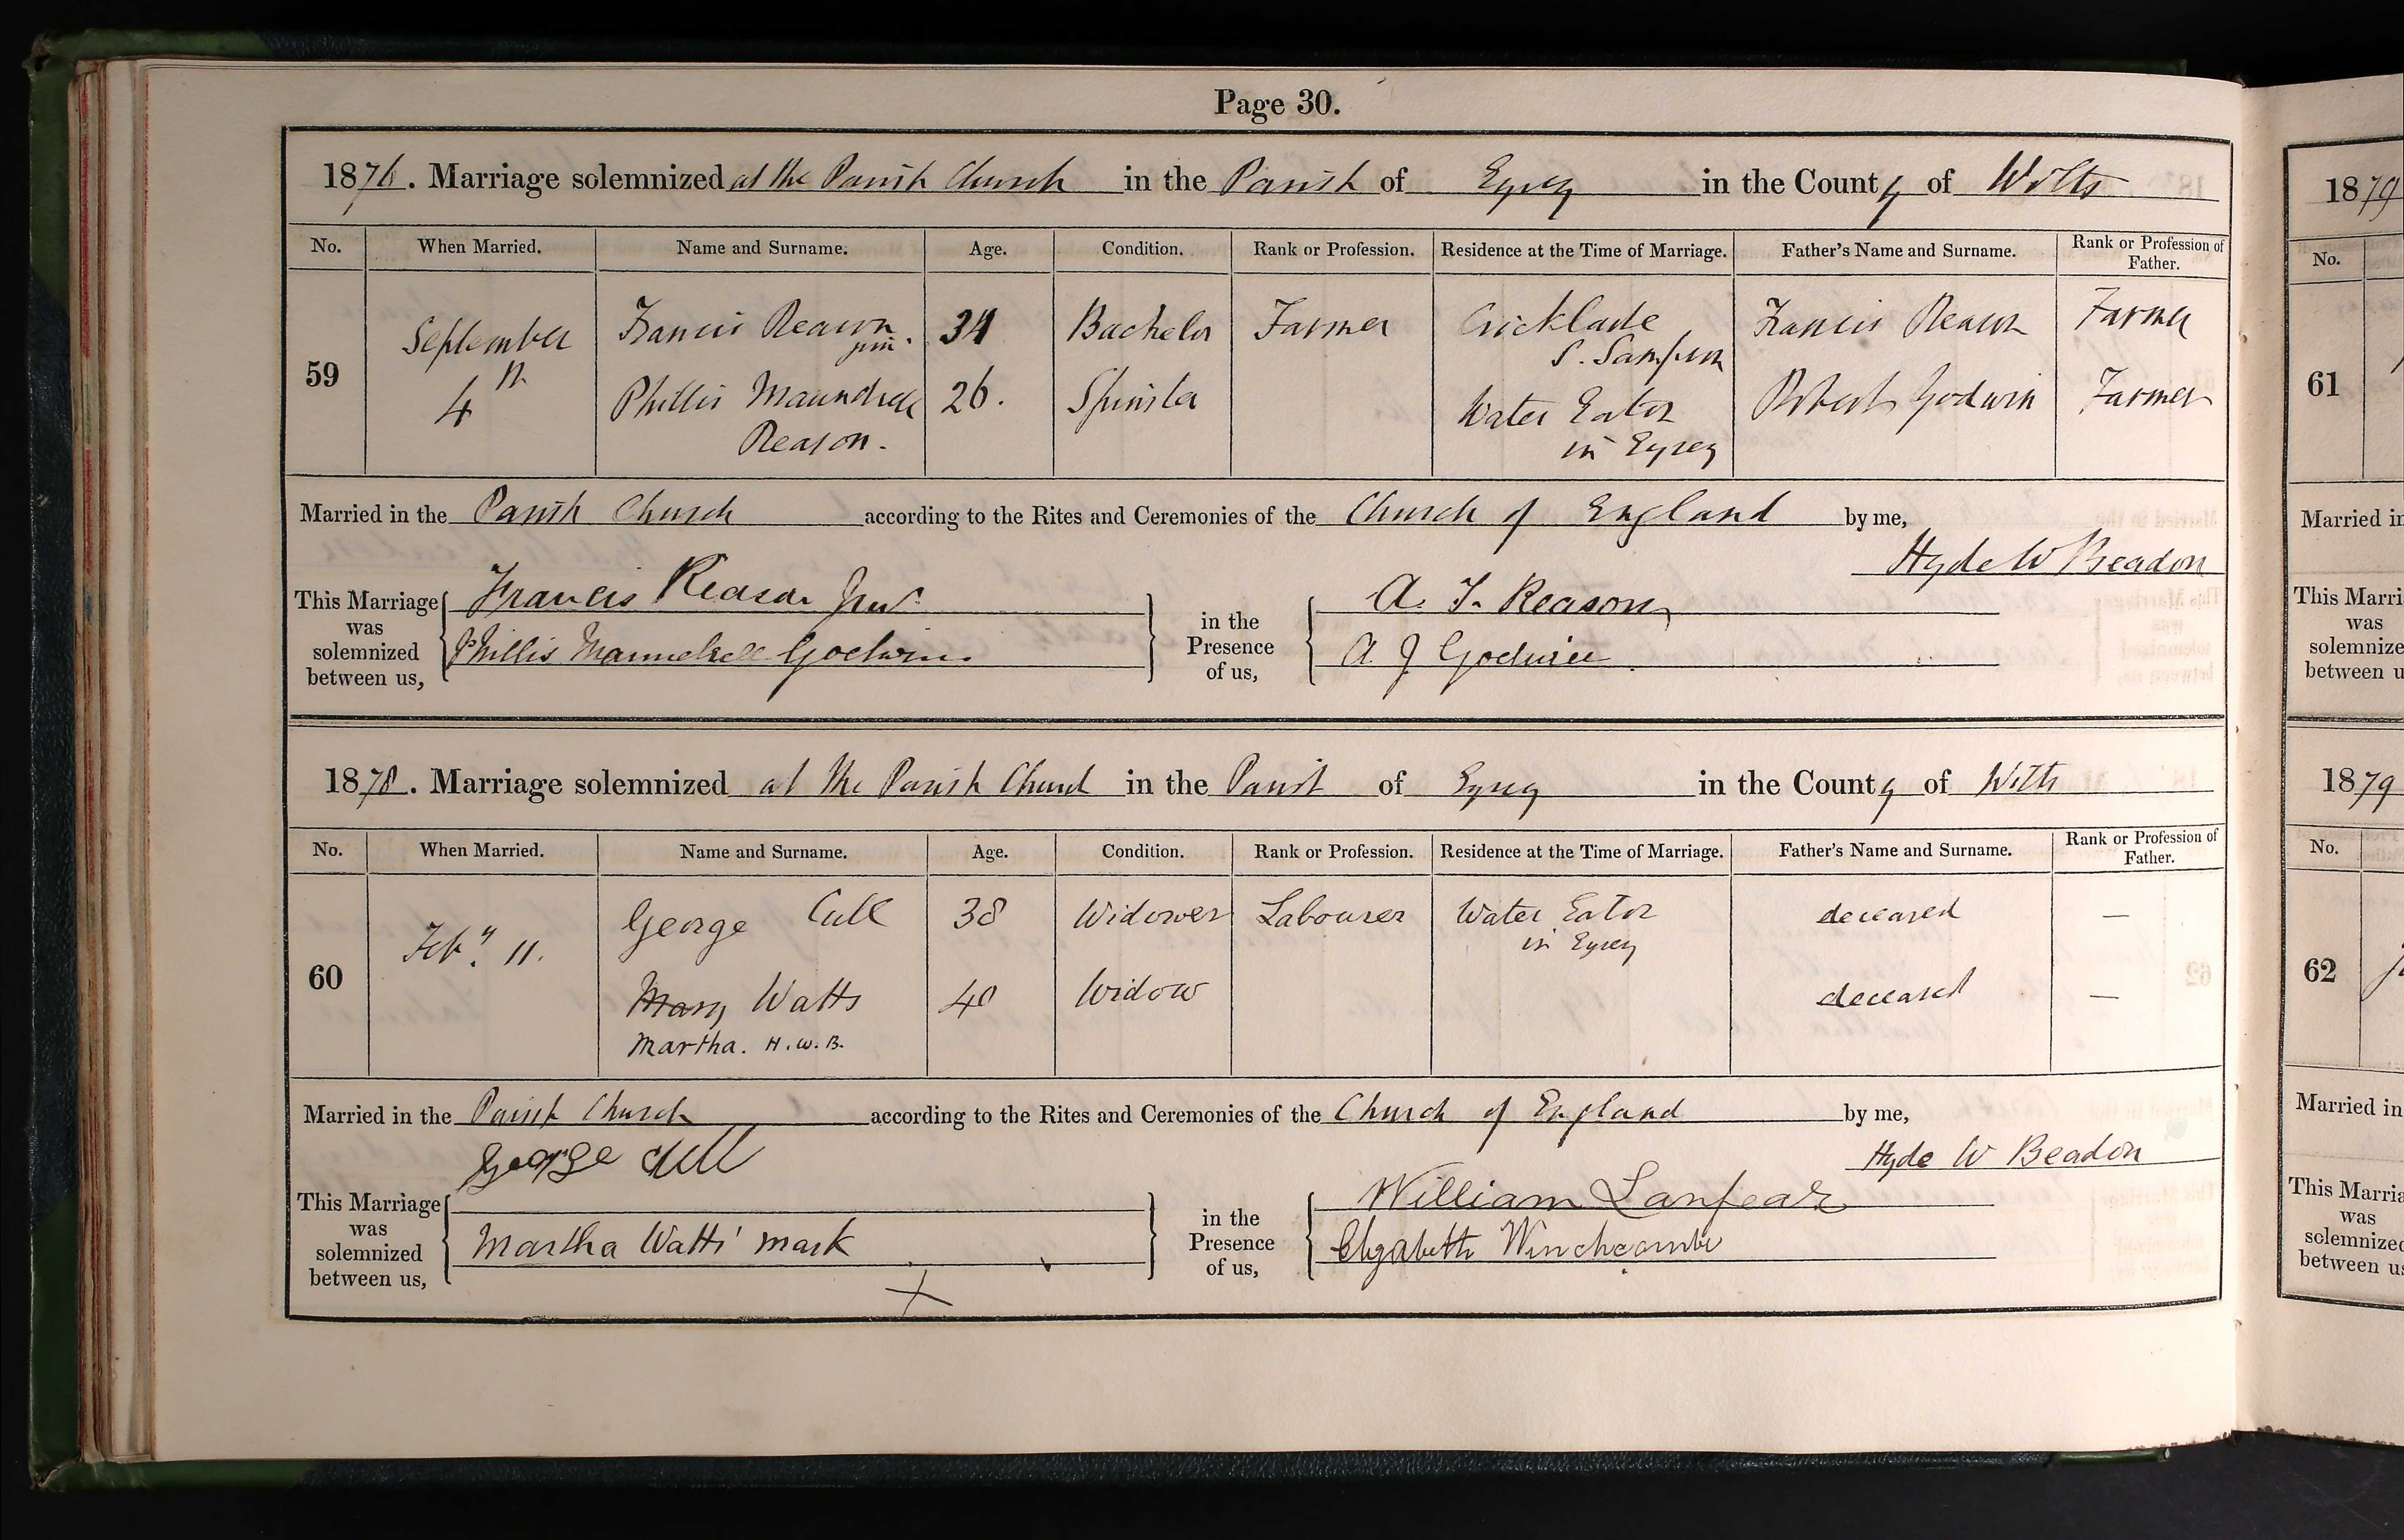 Page 30.
1876. Marriage solemnized at the Parish Church in the Parish of Eysey in the County of Wilts
No. When Married. Name and Surname. Age. Condition. Rank or Profession. Residence at the Time of Marriage. Father's Name and Surname. Rank or Profession of Father.
59 September 4th Francis Reason jun. 34 Bachelor Farmer Cricklade S. Sampson Francis Reason Farmer
Phillis Maundrell Reason. 26. Spinster Water Eaton in Eysey Robert Godwin Farmer
Married in the Parish Church according to the Rites and Ceremonies of the Church of England by me,
Hyde W Beadon
This Marriage was solemnized between us, Francis Reason Junr. in the Presence of us, A. T. Reason
Phillis Maundrell Godwin. A. J. Godwin
1878. Marriage solemnized at the Parish Church in the Parish of Eysey in the County of Wilts
No. When Married. Name and Surname. Age. Condition. Rank or Profession. Residence at the Time of Marriage. Father's Name and Surname. Rank or Profession of Father.
60 Feby. 11. George Cull 38 Widower Labourer Water Eaton in Eysey deceased —
Mary Watts 40 Widow deceased —
Martha. H.W.B.
Married in the Parish Church according to the Rites and Ceremonies of the Church of England by me,
Hyde W Beadon
This Marriage was solemnized between us, George Cull in the Presence of us, William Lanfear
Martha Watts' mark X Elizabeth Winchcombe
1879
No.
61
Married in
This Marri
was
solemnize
between u
1879
No.
62
Married in
This Marria
was
solemnized
between us